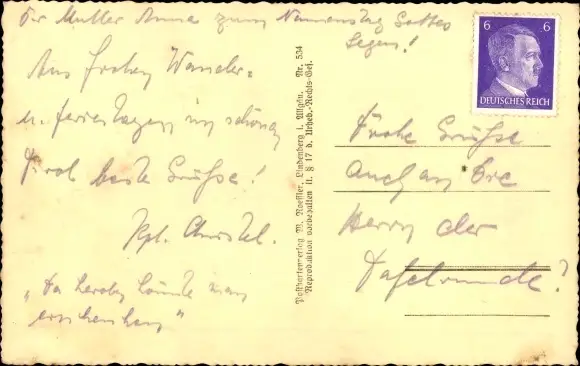 Der Mutter Anna zum Namenstag Gottes
Segen!
Aus frohen Wander-
u. Ferientagen im schönen
Tirol beste Grüße!
Kpl. Christel.
"Da könnte man
"
Postkartenverlag W. Roessler, Lindenberg i. Allgäu. Nr. 534
Reproduktion vorbehalten lt. § 17 d. Urheb.-Rechts-Ges.
6 6
DEUTSCHES REICH
Frohe Grüße
auch an die
Herrn der
Tafelrunde!